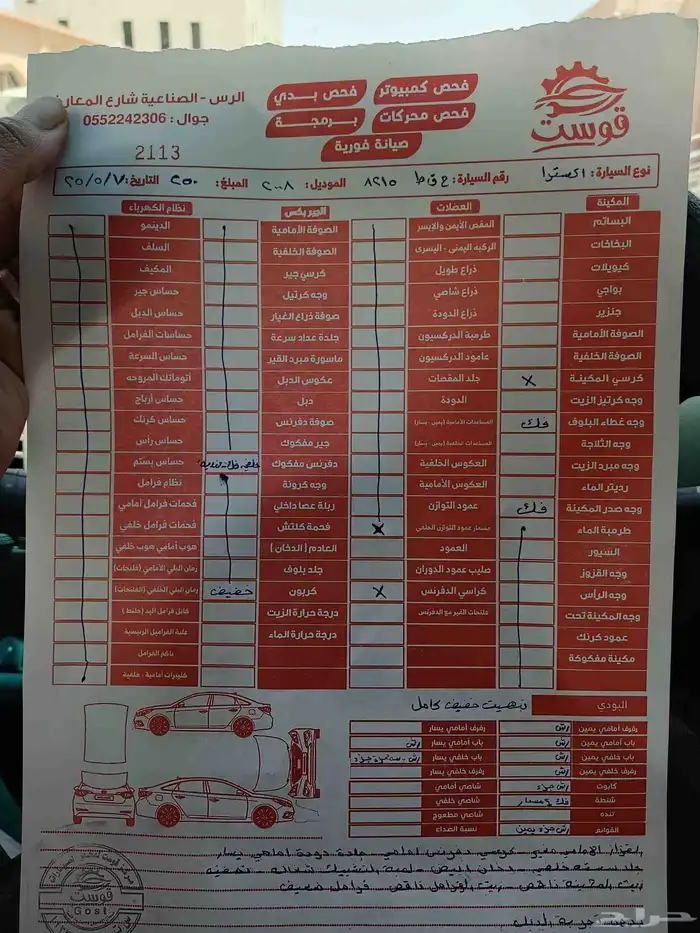 الرس - الصناعية شارع المعارف
جوال : 0552242306
2113
فحص كمبيوتر
فحص بدي
فحص محركات
برمجة
صيانة فورية
قوست
نوع السيارة : اكسترا
رقم السيارة : ح ق ط ٨٢١٥
الموديل : ٢٠٠٨
المبلغ : ٢٥٠
التاريخ : ٢٥/٥/٧
المكينة
البساتم
البخاخات
كويلات
بواجي
جنزير
الصوفة الأمامية
الصوفة الخلفية
كرسي المكينة X
وجه كرتيز الزيت
وجه غطاء البلوف فك
وجه الثلاجة
وجه مبرد الزيت
رديتر الماء
وجه صدر المكينة فك
طرمبة الماء
السيور
وجه القزوز
وجه الراس
وجه المكينة تحت
عمود كرنك
مكينة مفكوكة
العضلات
المقص الأيمن والايسر
الركبه اليمنى - اليسرى
ذراع طويل
ذراع شاصي
ذراع الدودة
طرمبة الدركسيون
عامود الدركسيون
جلد المقصات
الدودة
المساعدات الأمامية (يمين - يسار)
المساعدات الخلفية (يمين - يسار)
العكوس الخلفية
العكوس الأمامية
عمود التوازن
مسمار عمود التوازن الخلفي X
العمود
صليب عمود الدوران
كراسي الدفرنس X
فلنجات القير مع الدفرنس
الجير بكس
الصوفة الأمامية
الصوفة الخلفية
كرسي جير
وجه كرتيل
صوفة ذراع الغيار
جلدة عداد سرعة
ماسورة مبرد القير
عكوس الدبل
دبل
صوفة دفرنس
جير مفكوك
دفرنس مفكوك
وجه كرونة
ربلة عصا داخلي
فحمة كلتش
العادم (الدخان)
جلد بلوف
كربون خفيف
درجة حرارة الزيت
درجة حرارة الماء
نظام الكهرباء
الدينمو
السلف
المكيف
حساس جير
حساس الدبل
حساسات الفرامل
حساس السرعة
أتوماتك المروحه
حساس أرباح
حساس كرنك
حساس راس
حساس بستم
نظام فرامل
فحمات فرامل أمامي
فحمات فرامل خلفي
هوب أمامي هوب خلفي
رمان البلي الأمامي (فلنجات)
رمان البلي الخلفي (الفلنجات)
كابل فرامل اليد (جلنط)
علبة الفرامل الرئيسية
باكم الفرامل
كليبرات أمامية - خلفية
البودي
خفيف كامل
رفرف أمامي يمين رش
باب أمامي يمين رش
باب خلفي يمين رش
رفرف خلفي يمين رش
كابوت رش جزء
شنطة فك مسمار
تنده
القوائم رش جزء يمين
رفرف أمامي يسار
باب أمامي يسار رش
باب خلفي يسار
رفرف خلفي يسار
شاصي أمامي
شاصي خلفي
شاصي مطعوج
نسبة الصداء
كرسي دفرنس امامي - جلدة دودة امامي يسار
دخان ابيض - لمبة
زيت المكينة ناقص - زيت الفرامل ناقص - فرامل ضعيف
قوست
Gost
حراج